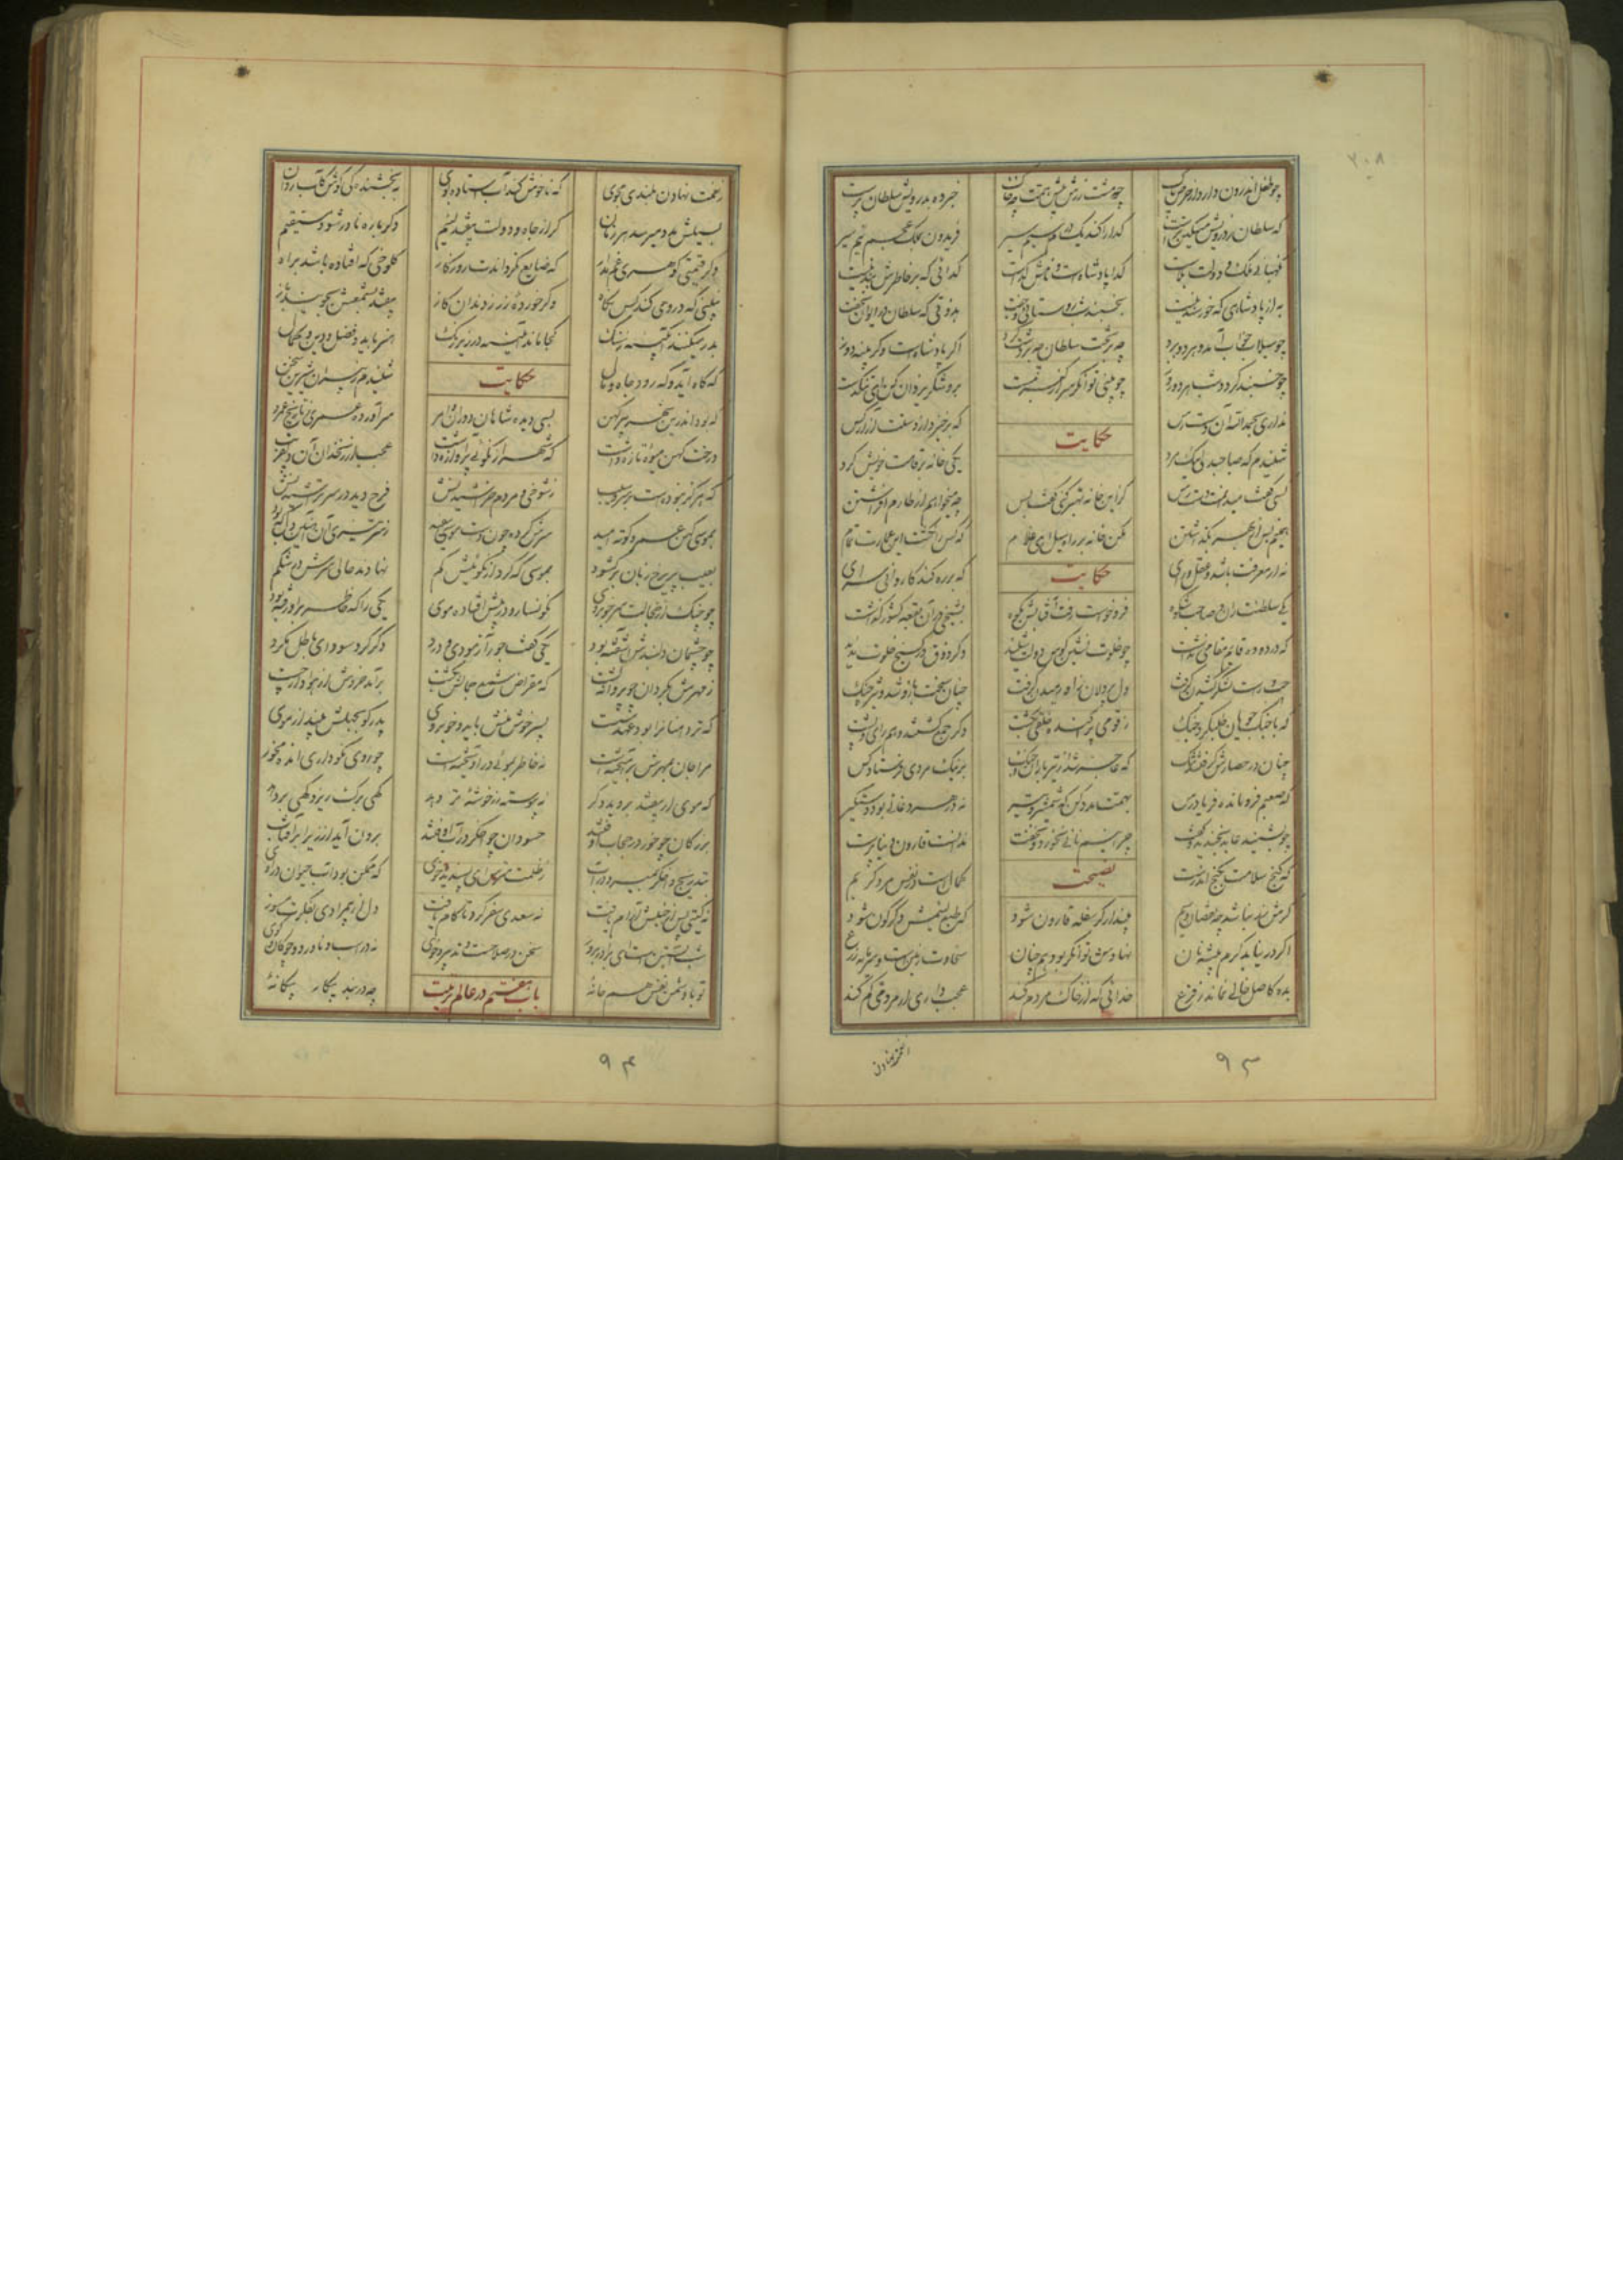 چو طفل اندرون دارد از حرص پاک
چو مشت زرش پیش همت چه خاک
خبر ده بدرویش سلطان پرست
که سلطان ز درویش مسکین ترست
گدا را کند یک درم سیم سیر
فریدون بملک عجم نیم سیر
نگهبانی ملک و دولت بلاست
گدا پادشاهست و نامش گداست
گدائی که بر خاطرش بند نیست
به از پادشاهی که خورسند نیست
بخسبند خوش روستائی و جفت
بذوقی که سلطان در ایوان نخفت
چو سیلاب خواب آمد و هر دو برد
چه بر تخت سلطان چه بر دشت کرد
اگر پادشاهست و گر پینه دوز
چو خسبند گردد شب هر دو روز
چو بینی توانگر سر از کبر مست
برو شکر یزدان کن ای تنگدست
نداری بحمدالله آن دست رس
که برخیزد از دستت آزار کس
حکایت
شنیدم که صاحبدلی نیک مرد
یکی خانه بر قامت خویش کرد
کسی گفت میدانمت دست رس
کزین خانه بهتر کنی گفت بس
چه میخواهم از طارم افراشتن
همینم بس از بهر بگذاشتن
مکن خانه بر راه سیل ای غلام
که کس را نگشت این عمارت تمام
نه از معرفت باشد و عقل و رای
که بر ره کند کاروانی سرای
حکایت
یکی سلطنت ران صاحب شکوه
فرو خواست رفت آفتابش بکوه
بشیخی در آن بقعه کشور گذاشت
که در دوده قائم مقامی نداشت
چو خلوت نشین کوس دولت شنید
دگر ذوق در کنج خلوت ندید
چپ و راست لشکر کشیدن گرفت
دل پردلان زو رمیدن گرفت
چنان سخت بازو شد و تیز چنگ
که با جنگ جویان طلبکرد جنگ
ز قومی پراکنده خلقی بکشت
دگر جمع گشتند و هم رای و پشت
چنان در حصارش گرفتند تنگ
که عاجز شد از تیرباران و سنگ
بر نیک مردی فرستاد کس
که صعبم فرومانده فریادرس
بهمت مدد کن که شمشیر و تیر
نه در هر وغائی بود دستگیر
چو بشنید عابد بخندید و گفت
چرا نیم نانی نخورد و نخفت
ندانست قارون دنیا پرست
که گنج سلامت بکنج اندرست
نصیحت
کمالست در نفس مرد کریم
گرش زر نباشد چه نقصان و بیم
مپندار گر سفله قارون شود
که طبع لئیمش دگرگون شود
اگر در نیابد کرم پیشه نان
نهادش توانگر بود همچنان
سخاوت زمین است و سرمایه زرع
بده کاصل خالی نماند ز فرع
خدائی که از خاک مردم کند
عجب داری ار مردمی گم کند
۹۳
ز نعمت نهادن بلندی مجوی
که ناخوش کند آب استاده بوی
به بخشندگی کوش کآب روان
بسیلش مدد میرسد هر زمان
گر از جاه و دولت بیفتد لئیم
دگر باره نادر شود مستقیم
وگر قیمتی گوهری غم مدار
که ضایع نگرداندت روزگار
کلوخی که افتاده باشد براه
نبینی که در وی کند کس نگاه
وگر خورده زر ز دندان گاز
بیفتد بشمعش بجویند باز
بدر میکنند آبگینه ز سنگ
کجا ماند آئینه در زیر زنگ
هنر باید و فضل و دین و کمال
که گاه آید و گه رود جاه و مال
حکایت
شنیدم ز پیران شیرین سخن
که بود اندرین شهر پیر کهن
بسی دیده شاهان و دوران و امر
سر آورده عمری ز تاریخ عمرو
درخت کهن میوه تازه داشت
که شهر از نکوئی پر آوازه داشت
عجب در زنخدان آن دلفریب
که هرگز نبودست بر سرو سیب
ز شوخی و مردم خراشیدنش
فرح دید در سر تراشیدنش
بموسی کهن عمر کوته امید
سرش کرد چون دست موسی سپید
ز سر تیزی آن آهنین دل که بود
بعیب پریرخ زبان برگشود
بموسی که کرد از نکوئیش کم
نهادند حالی سرش در شکم
چو چنگ از خجالت سر خوبروی
نگونسار و در پیش افتاده موی
یکی را که خاطر برو رفته بود
چو چشمان دلبندش آشفته بود
یکی گفت جور آزمودی و درد
دگر گرد سودای باطل مگرد
ز مهرش بگردان چو پروانه پشت
که مقراض شمع جمالش بکشت
برآمد خروش از هوادار چست
که تردامنانرا بود عهد سست
پسر خوش منش باید و خوبروی
پدر گو بجهلش بینداز موی
مرا جان بمهرش برآمیخته است
نه خاطر بموئی درآویخته است
چو روی نکو داری انده مخور
که موی ار بیفتد بروید دگر
نه پیوسته رز خوشه تر دهد
گهی برگ ریزد گهی بر دهد
بزرگان چو خور در حجاب اوفتند
حسودان چو اخگر در آب اوفتند
برون آید از زیر ابر آفتاب
بتدریج و اخگر بمیرد در آب
ز ظلمت مترس ای پسندیده خوی
که ممکن بود آب حیوان دروی
نه گیتی پس از جنبش آرام یافت
نه سعدی سفر کرد تا کام یافت
دل از بیمرادی بفکرت مسوز
شب آبستن است ای برادر بروز
باب هفتم در عالم تربیت
سخن در صلاحست و تدبیر و خوی
نه در اسب و ناورد و چوگان و گوی
تو با دشمن نفس هم خانه
چه در بند پیکار بیگانه
۹۴